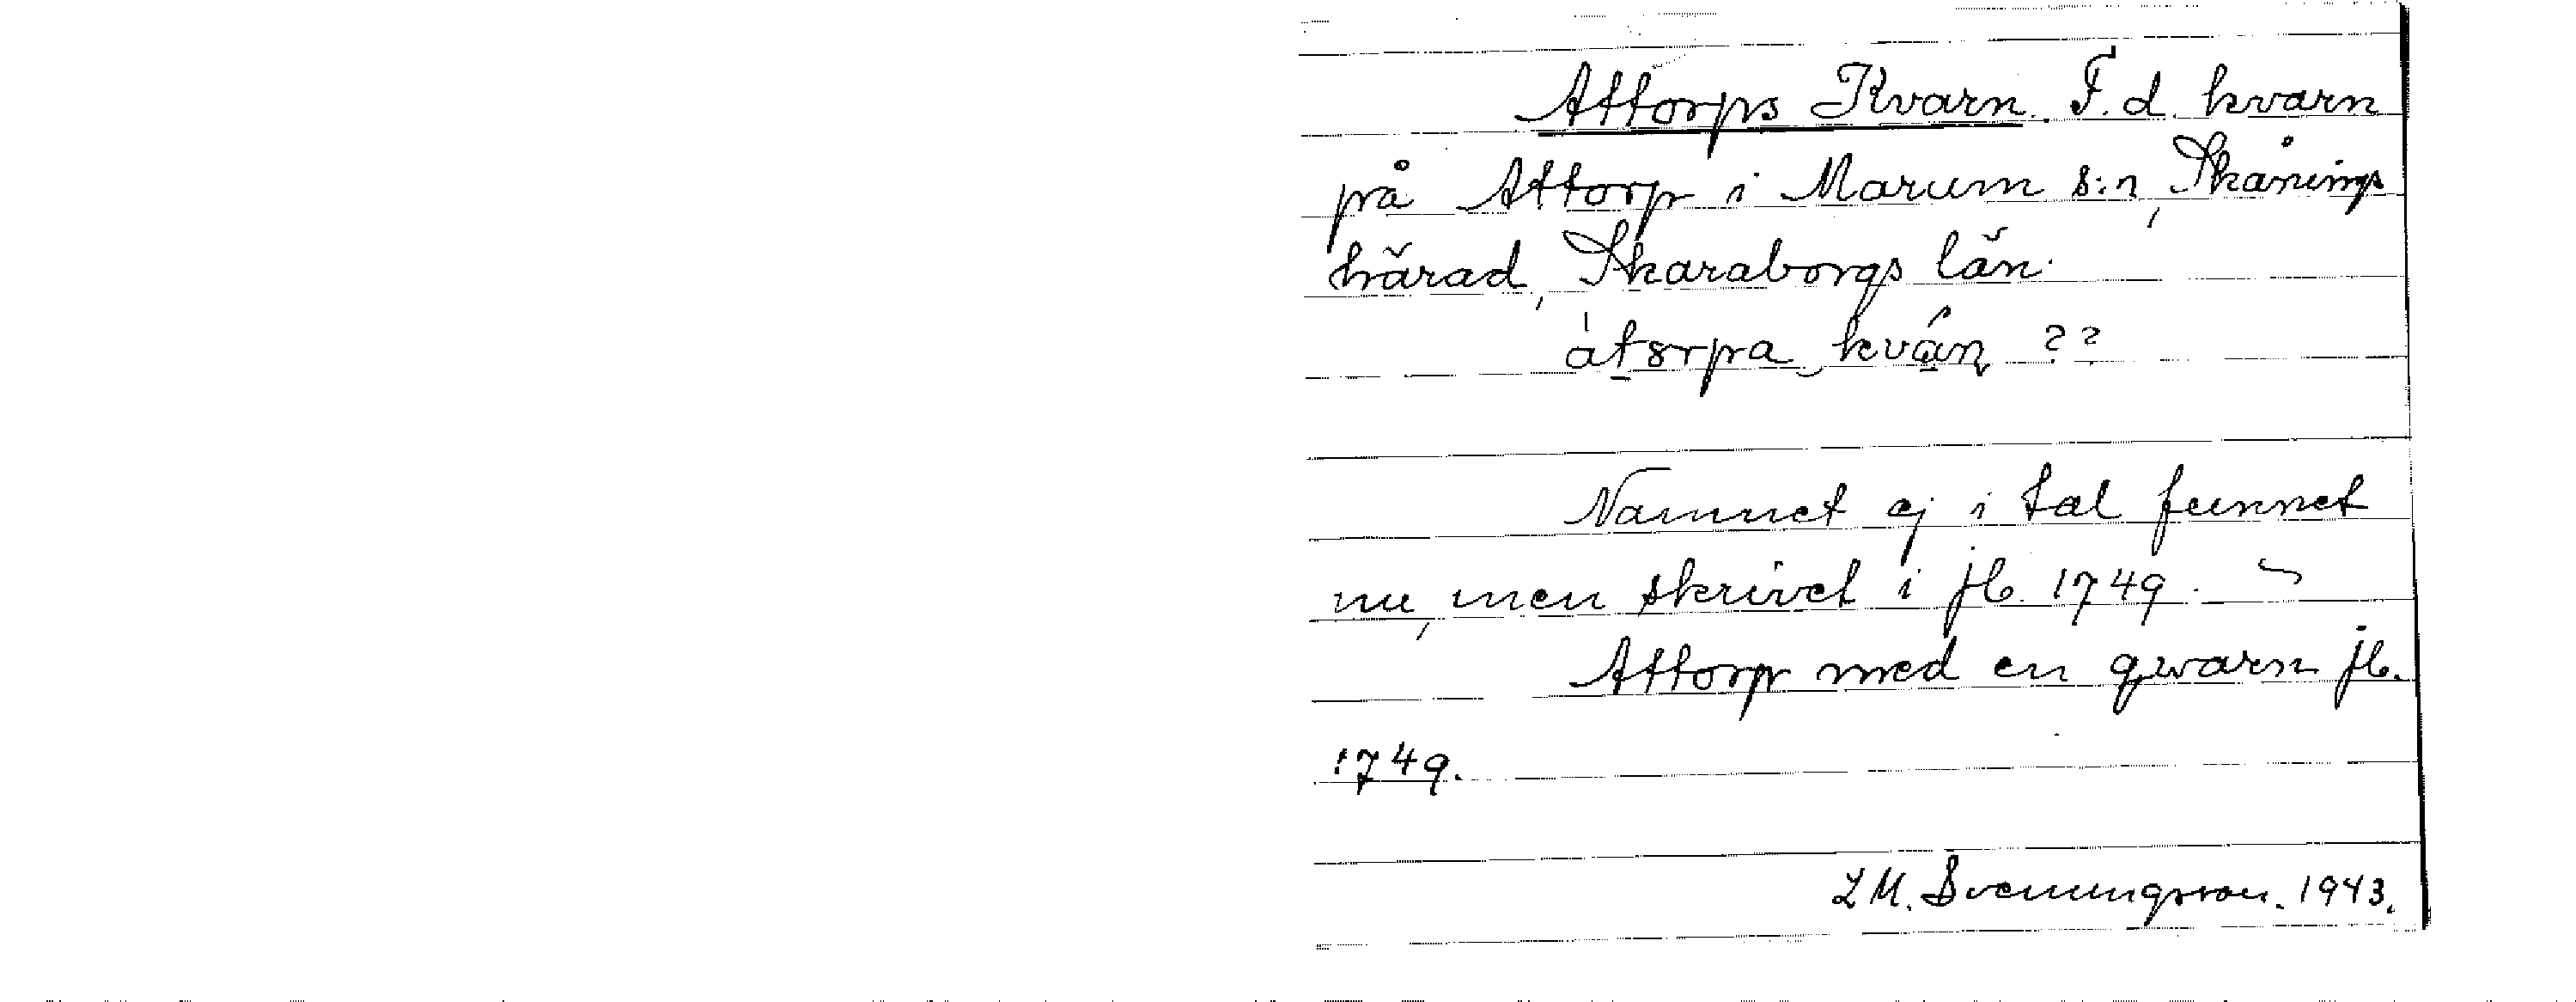 Attorps Kvarn. F. d. kvarn
på Attorp i Marum s:n, Skånings
härad, Skaraborgs län.
àtsrpa kván ??
Namnet ej i tal funnet
nu, men skrivet i jb. 1749.
Attorp med en qwarn jb.
1749.
L M. Svenungsson. 1943.